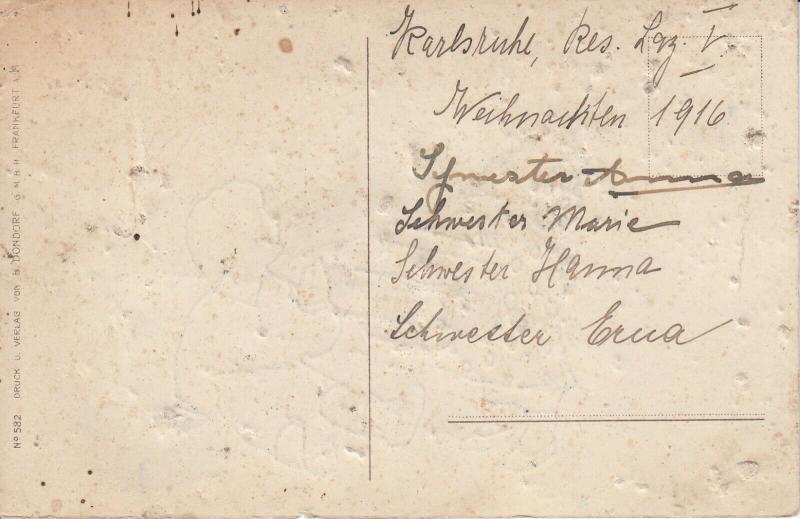 Karlsruhe, Res. Laz. V.
Weihnachten 1916
Schwester Anna
Schwester Marie
Schwester Hanna
Schwester Erna
Nº 582 DRUCK U. VERLAG VON B. DONDORF G M B H FRANKFURT